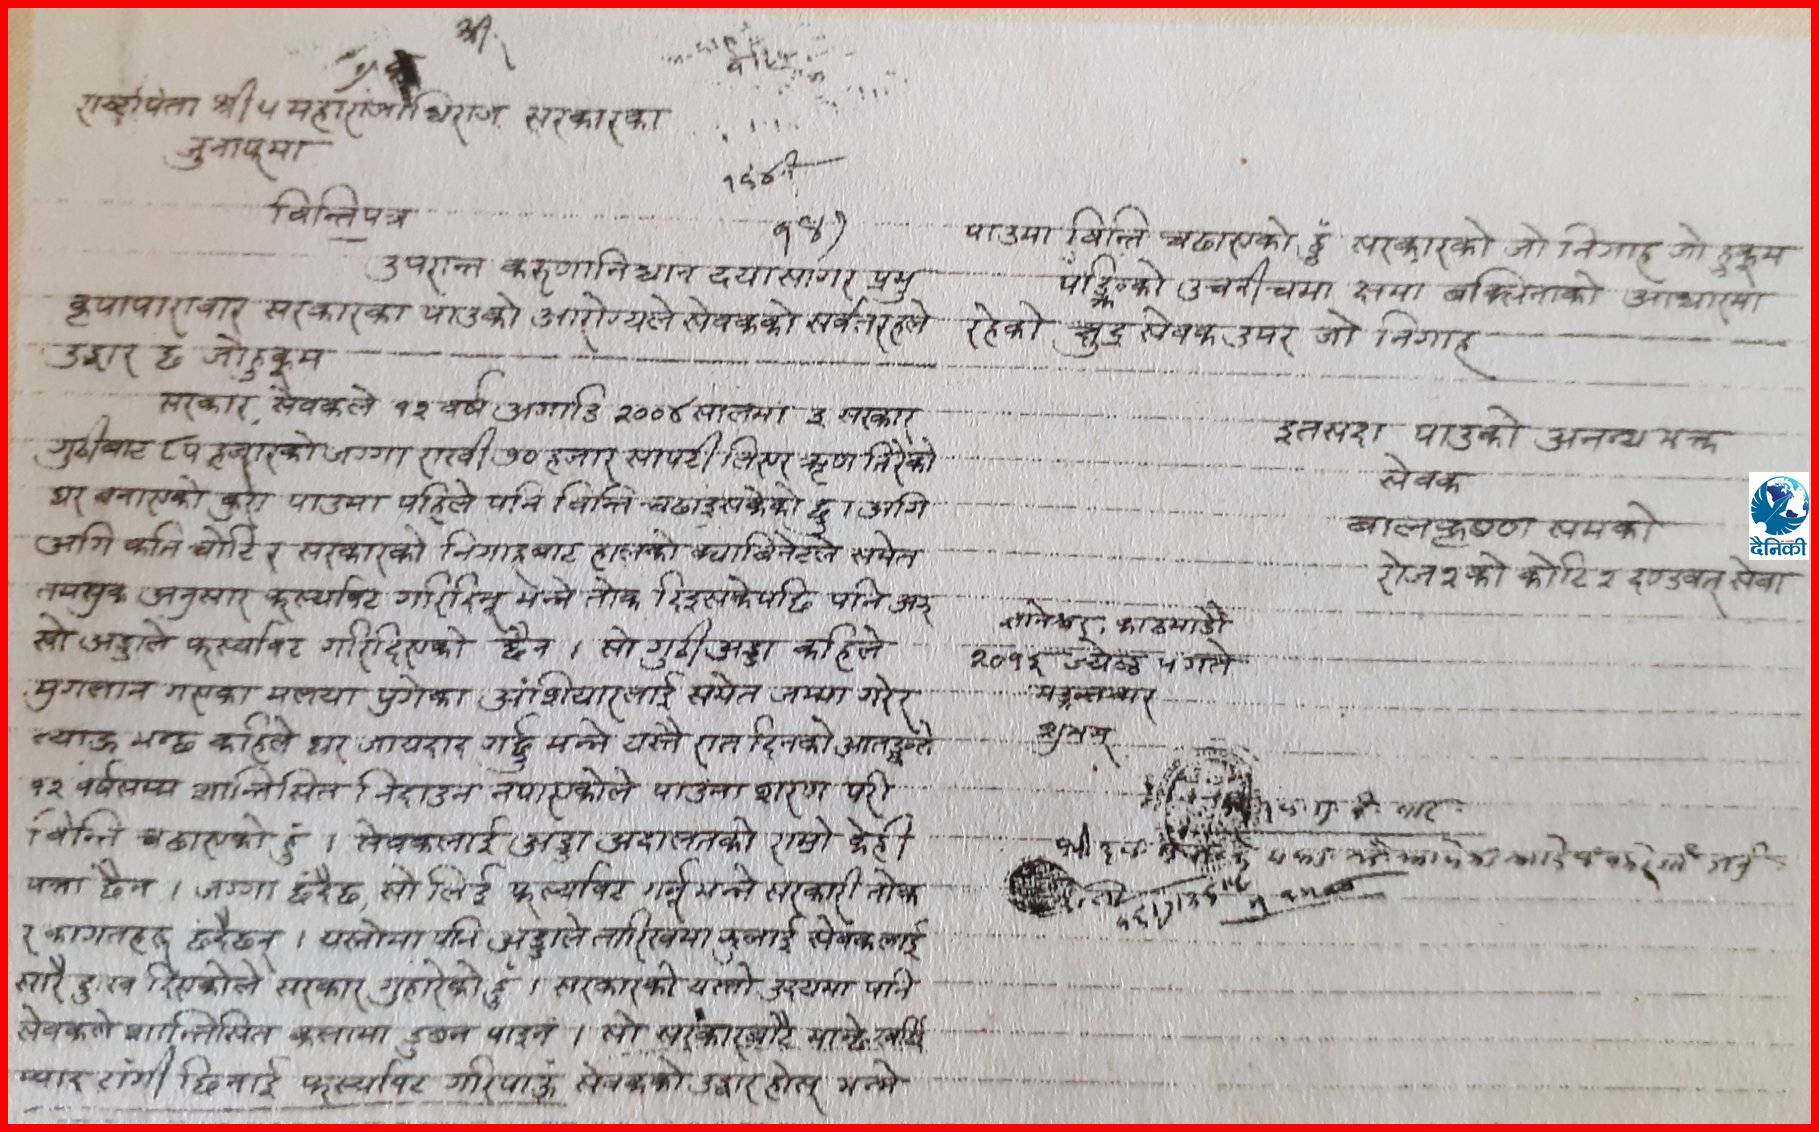 श्री
राष्ट्रपिता श्री ५ महाराजाधिराज सरकारका
जुनाफमा
विन्तिपत्र
उपरान्त करुणानिधान दयासागर प्रभु
कृपापारावार सरकारका पाउको आरोग्यले सेवकको सर्वतरहले
उद्धार छ जोहुकूम
सरकार, सेवकले १२ वर्ष अगाडि २००४ सालमा ३ सरकार
गुठीबाट ८५ हजारको जग्गा राखी ७० हजार सापटी लिएर ऋण तिरेको
घर बनाएको कुरा पाउमा पहिले पनि विन्ति चढाइसकेको छु । अगि
अगि कति चोटि र सरकारको निगाहबाट हालको क्याबिनेटले समेत
तमसुक अनुसार फर्स्यावट गरिदिनू भन्ने तोक दिइसकेपछि पनि अरू
सो अड्डाले फर्स्यावट गरिदिएको छैन । सो गुठी अड्डा कहिले
मुगलान गएका मलाया पुगेका अंशियारलाई समेत जम्मा गरेर
ल्याऊ भन्छ कहिले घर जायदाद गर्छु भन्ने यस्तै रात दिनको आतङ्कले
१२ वर्षसम्म शान्तिसित निदाउन नपाएकोले पाउमा शरण परी
विन्ति चढाएको हुं । सेवकलाई अड्डा अदालतको राम्रो केही
पत्ता छैन । जग्गा छंदैछ, सो लिई फर्स्यावट गर्नू भन्ने सरकारी तोक
र कागतहरू छंदैछन् । यस्तोमा पनि अड्डाले तारिखमा फुलाई सेवकलाई
सारै दुःख दिएकोले सरकार गुहारेको हुं । सरकारको यस्तो उदयमा पनि
सेवकले शान्तिसित कलामा डुब्न पाइन । सो सरकारबाटै मान्छे खटि
प्यार टांगी छिनाई फर्स्यावट गरिपाऊं सेवकको उद्धार होस् भन्ने
पाउमा विन्ति चढाएको हुँ सरकारको जो निगाह जो हुकूम
पङ्क्तिको उचनीचमा क्षमा बक्सिनाको आधारमा
रहेको क्षुद्र सेवक उपर जो निगाह
इतसदा पाउको अनन्य भक्त
सेवक
बालकृष्ण समको
रोज २ को कोटि २ दण्डवत् सेवा
ज्ञानेश्वर, काठमाडौं
२०१६ ज्येष्ठ ५ गते
मङ्गलबार
शुभम्
दैनिकी